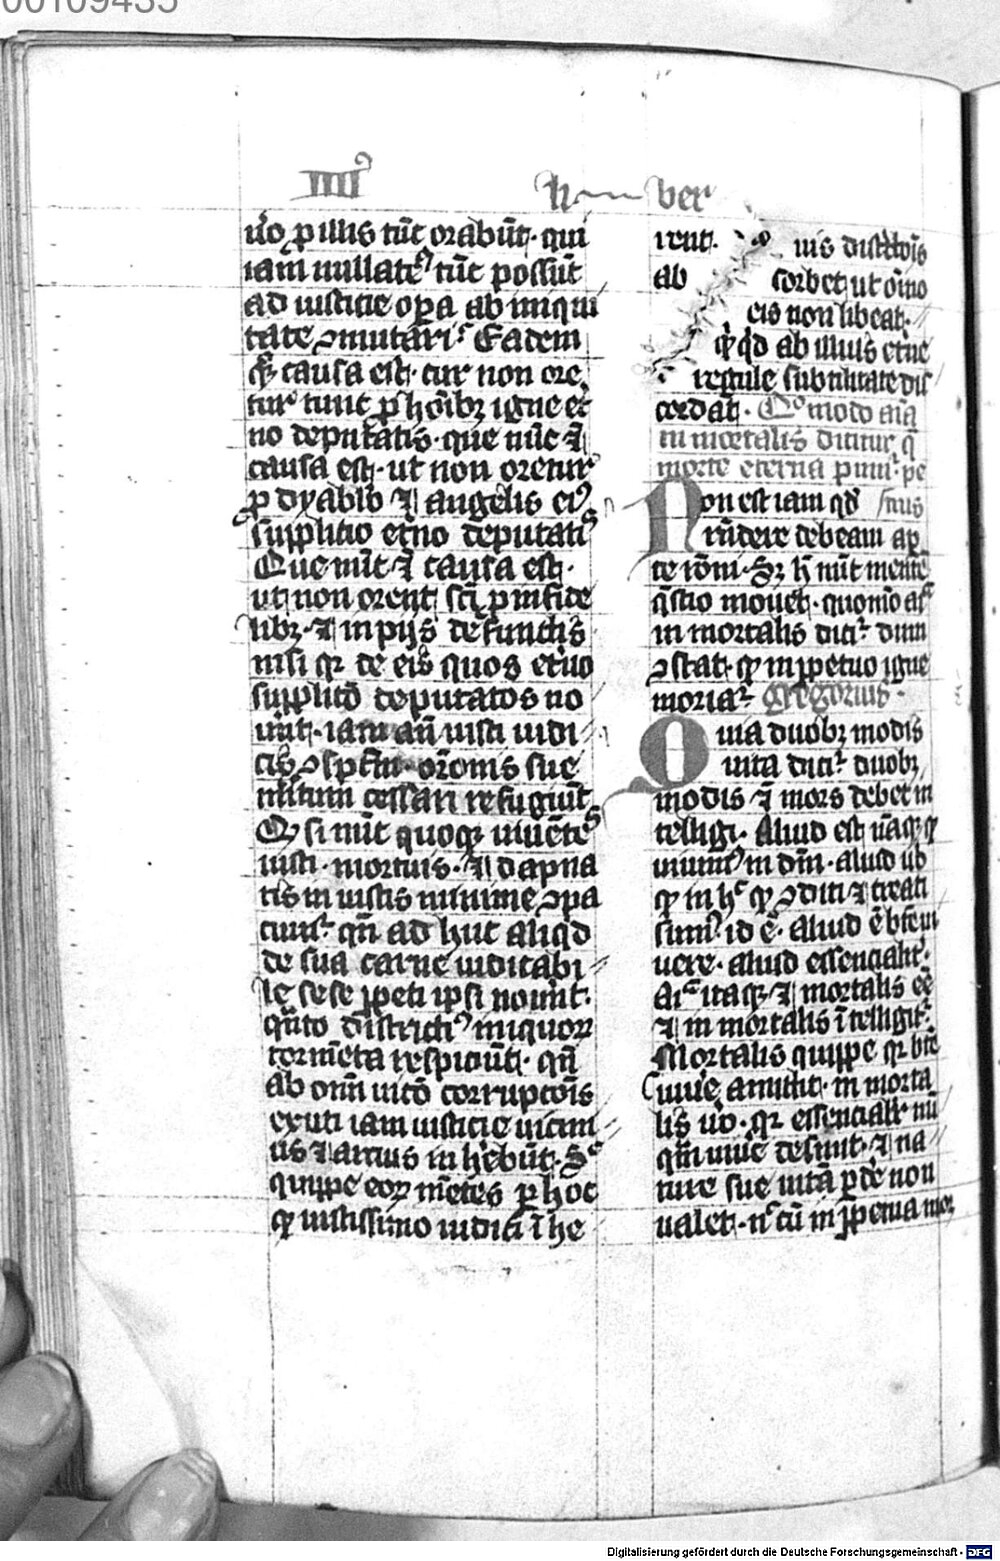 00109435
IIII
ber
u͛o ꝑ illis tūc orabūt· qui
iam nullaten᷒ tūc possūt
ad iusticie oꝑa ab iniqui
tate ꝯmutari· Eadem
q̨ causa est· cur non ore
tur tunc ꝓ hōibꝫ igne et
no deputatis· que nūc ⁊
causa est· ut non oretur
ꝓ dyablo ⁊ angelis ei᷒
supplicio et͛no deputatis
Que nūc ⁊ causa est·
ut non orent sc̄i ꝓ infide
libꝫ· ⁊ inpijs defunctis
nisi qꝛ de eis quos et͛no
supplicō deputatos no
uūt· iam añ iusti iudi
cis ꝯspc̄m· or̄onis sue
m̄itum cessari refugiūt
Qd si nūc quoqꝫ uiuētes
iusti· mortuis· ⁊ dāpna
tis iniustis minime ꝯpa
ciunt᷒· qn̄ ad huc aliqd
de sua carne iudicabi
le sese ꝑpeti ipsi nouūt·
qūto districti᷒ iniquoꝝ
tormēta respiciūt· qn̄
ab om̄i uicō corrupcōis
exuti iam iusticie uicini
us ⁊ arcius inhebūt· Sic
quippe eoꝝ mētes ꝑ hoc
q̨ iustissimo iudici īhe
rent·
ab sorbet ut om̄no
eis non libeat·
q̨cqd ab illius et͛ne
regule subtilitate dis
cordat· Quomodo aīa
in mortalis dicitur q̄
morte eterna puni·
Non est iam qd
rn̄dere debeam aꝑ
te rōni· Sꝫ h̄ nūc mente
q̄stio mouet· quomō aīa
in mortalis dicit᷒ dum
ꝯstat· q̨ in ꝑpetuo igne
moriat᷒· Gregorius·
Quia duobꝫ modis
uita dicit᷒ duobꝫ
modis ⁊ mors debet in
telligi· Aliud est nāqꝫ q̨
uiuim᷒ in dn̄o· aliud u͛o
q̨ in h͛ q̨ ꝯditi ⁊ creati
sum᷒ id ē· aliud ē bt̄e ui
uere· aliud essencialit͛·
Aīa itaqꝫ ⁊ mortalis eē
⁊ in mortalis ītelligit᷒·
Mortalis quippe qꝛ bt̄e
uiu͛e amittit· in morta
lis u͛o· qꝛ essencialit͛ nū
qm̄ uiu͛e desinit· ⁊ na
ture sue uitā ꝑd͛e non
ualet· n͛ cū in ꝑpetua mor
Digitalisierung gefördert durch die Deutsche Forschungsgemeinschaft - DFG